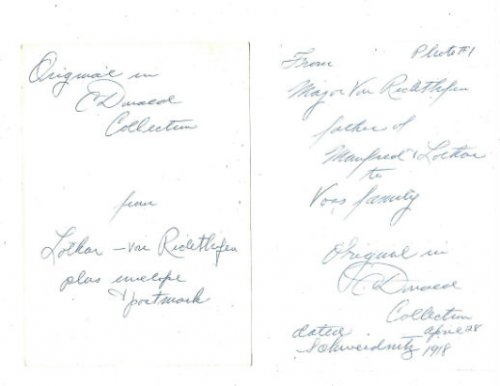 Original in
Collection
from
Lothar - von Richthofen
plus envelope
& postmark
Photo #1
From
Major Von Richthofen
father of
Manfred & Lothar
to
Voss family
Original in
Collection
dated April 28
Schweidnitz 1918